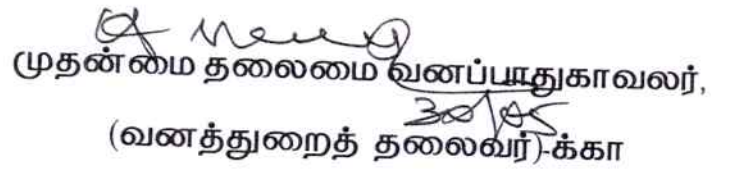 முதன்மை தலைமை வனப்பாதுகாவலர்,
30/05
(வனத்துறைத் தலைவர்)-க்கா